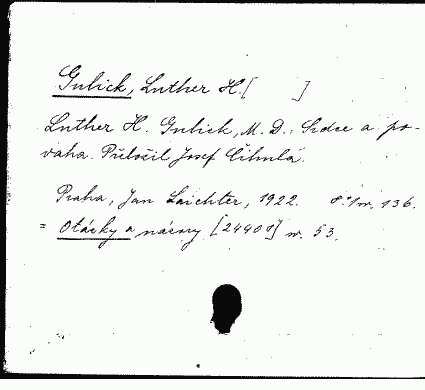 Gulick, Luther H. [ ]
Luther H. Gulick, M. D.: Srdce a po-
vaha. Přeložil Josef Cibula.
Praha, Jan Laichter, 1922. 8° 136.
= Otázky a názory [24408] 53.